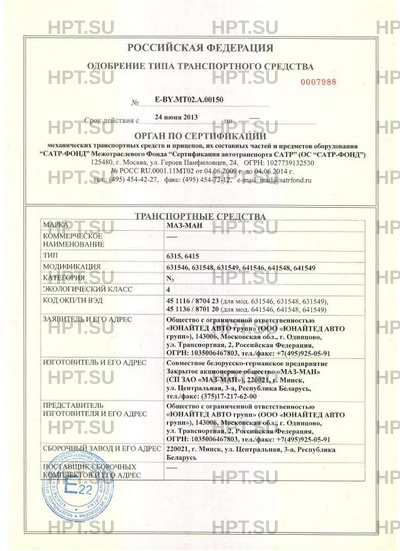 HPT.SU HPT.SU HPT.SU
РОССИЙСКАЯ ФЕДЕРАЦИЯ
ОДОБРЕНИЕ ТИПА ТРАНСПОРТНОГО СРЕДСТВА
0007988
№ Е-BY.МТ02.А.00150
Срок действия с 24 июня 2013 по
ОРГАН ПО СЕРТИФИКАЦИИ
механических транспортных средств и прицепов, их составных частей и предметов оборудования
“САТР-ФОНД” Межотраслевого Фонда “Сертификация автотранспорта САТР” (ОС “САТР-ФОНД”)
125480, г. Москва, ул. Героев Панфиловцев, 24, ОГРН: 1027739132530
№ РОСС RU.0001.11МТ02 от 04.06.2009 г. до 04.06.2014 г.
тел.: (495) 454-42-27, факс: (495) 454-72-12, e-mail: mail@satrfond.ru
ТРАНСПОРТНЫЕ СРЕДСТВА
МАРКА МАЗ-МАН
КОММЕРЧЕСКОЕ НАИМЕНОВАНИЕ —
ТИП 6315, 6415
МОДИФИКАЦИЯ 631546, 631548, 631549, 641546, 641548, 641549
КАТЕГОРИЯ N₃
ЭКОЛОГИЧЕСКИЙ КЛАСС 4
КОД ОКП/ТН ВЭД 45 1116 / 8704 23 (для мод. 631546, 631548, 631549),
45 1136 / 8701 20 (для мод. 641546, 641548, 641549)
ЗАЯВИТЕЛЬ И ЕГО АДРЕС Общество с ограниченной ответственностью
«ЮНАЙТЕД АВТО групп» (ООО «ЮНАЙТЕД АВТО
групп»), 143006, Московская обл., г. Одинцово,
ул. Транспортная, 2, Российская Федерация,
ОГРН: 1035006467803, тел./факс: +7(495)925-05-91
ИЗГОТОВИТЕЛЬ И ЕГО АДРЕС Совместное белорусско-германское предприятие
Закрытое акционерное общество «МАЗ-МАН»
(СП ЗАО «МАЗ-МАН»), 220021, г. Минск,
ул. Центральная, 3-а, Республика Беларусь,
тел./факс: (375)17-217-62-00
ПРЕДСТАВИТЕЛЬ
ИЗГОТОВИТЕЛЯ И ЕГО АДРЕС
Общество с ограниченной ответственностью
«ЮНАЙТЕД АВТО групп» (ООО «ЮНАЙТЕД АВТО
групп»), 143006, Московская обл., г. Одинцово,
ул. Транспортная, 2, Российская Федерация,
ОГРН: 1035006467803, тел./факс: +7(495)925-05-91
СБОРОЧНЫЙ ЗАВОД И ЕГО АДРЕС 220021, г. Минск, ул. Центральная, 3-а, Республика
Беларусь
ПОСТАВЩИК СБОРОЧНЫХ
КОМПЛЕКТОВ И ЕГО АДРЕС —
E22
HPT.SU HPT.SU HPT.SU